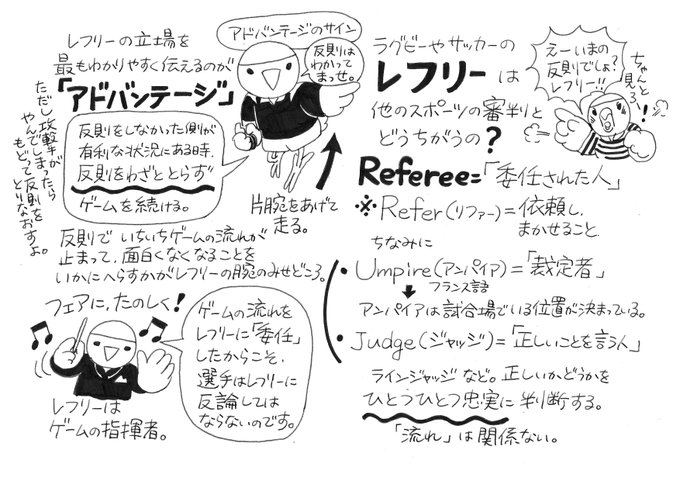 ラグビーやサッカーの
レフリーは
他のスポーツの審判と
どうちがうの?
えーいまの
反則でしょ?
レフリー!!
ちゃんと
見ろ!
Referee=「委任された人」
※Refer(リファー)=依頼し、
まかせること
ちなみに
・Umpire(アンパイア)=「裁定者」
フランス語
アンパイアは試合場でいる位置が決まっている。
・Judge(ジャッジ)=「正しいことを言う人」
ラインジャッジなど。正しいかどうかを
ひとつひとつ忠実に判断する。
「流れ」は関係ない。
レフリーの立場を
最もわかりやすく伝えるのが
「アドバンテージ」
アドバンテージのサイン
反則は
わかって
まっせ。
反則をしなかった側が
有利な状況にある時、
反則をわざととらず
ゲームを続ける。
片腕をあげて
走る。
ただし攻撃が
やんでしまったら
もどって反則を
とりなおすよ。
反則でいちいちゲームの流れが
止まって、面白くなくなることを
いかにへらすかがレフリーの腕のみせどころ。
フェアに、たのしく!
レフリーは
ゲームの指揮者。
ゲームの流れを
レフリーに「委任」
したからこそ、
選手はレフリーに
反論しては
ならないのです。